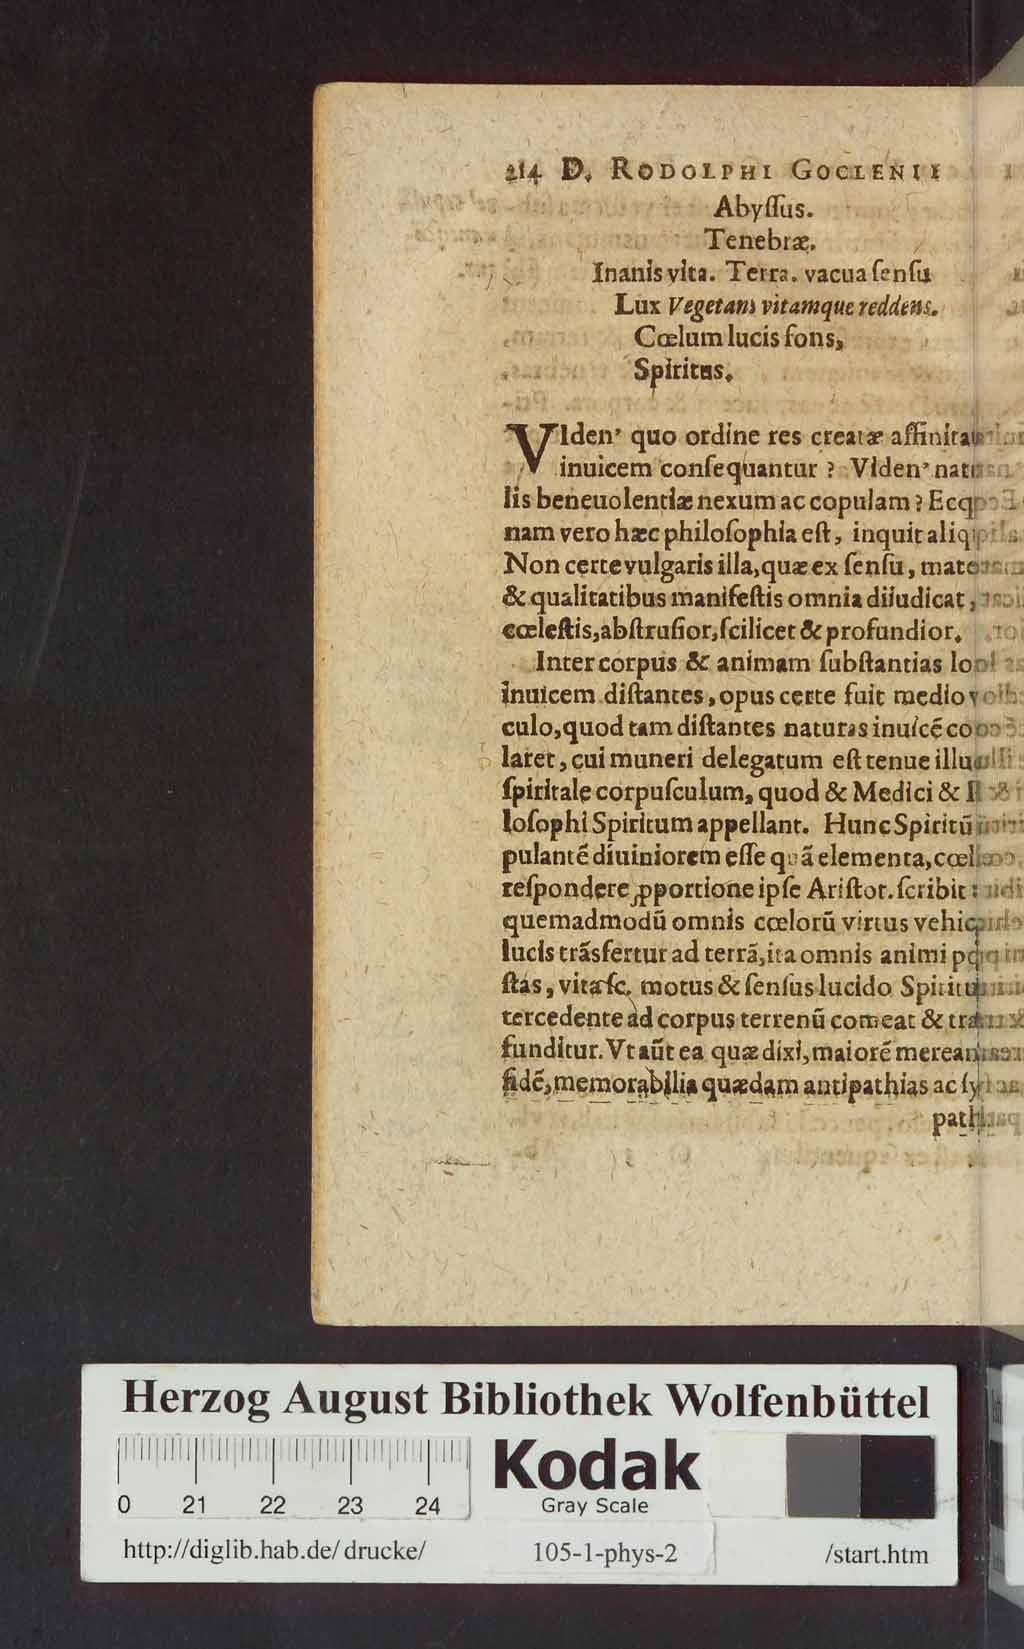 214 D. RODOLPHI GOCLENII
Abyſſus.
Tenebræ.
Inanis vita. Terra. vacua ſenſu
Lux Vegetans vitamque reddens.
Cœlum lucis fons,
Spiritus.
VIden' quo ordine res creatæ affinita
inuicem conſequantur ? Viden' nat
lis beneuolentiæ nexum ac copulam ? Ecq
nam vero hæc philoſophia eſt, inquit aliq
Non certe vulgaris illa, quæ ex ſenſu, mate
& qualitatibus manifeſtis omnia diiudicat,
cœleſtis, abſtruſior, ſcilicet & profundior.
Inter corpus & animam ſubſtantias lo
inuicem diſtantes, opus certe fuit medio v
culo, quod tam diſtantes naturas inuicé co
laret, cui muneri delegatum eſt tenue illu
ſpiritale corpuſculum, quod & Medici &
loſophi Spiritum appellant. Hunc Spiritū
pulanté diuiniorem eſſe quã elementa, cœl
reſpondere ꝓportione ipſe Ariſtot. ſcribit :
quemadmodū omnis cœlorū virtus vehic
lucis trãsfertur ad terrã, ita omnis animi po
ſtas, vita ſc. motus & ſenſus lucido Spiritu
tercedente ad corpus terrenū comeat & tra
funditur. Vt aūt ea quæ dixi, maioré merean
fidé, memorabilia quædam antipathias ac ſy
path
Herzog August Bibliothek Wolfenbüttel
0 21 22 23 24
Kodak
Gray Scale
http://diglib.hab.de/drucke/ 105-1-phys-2 /start.htm